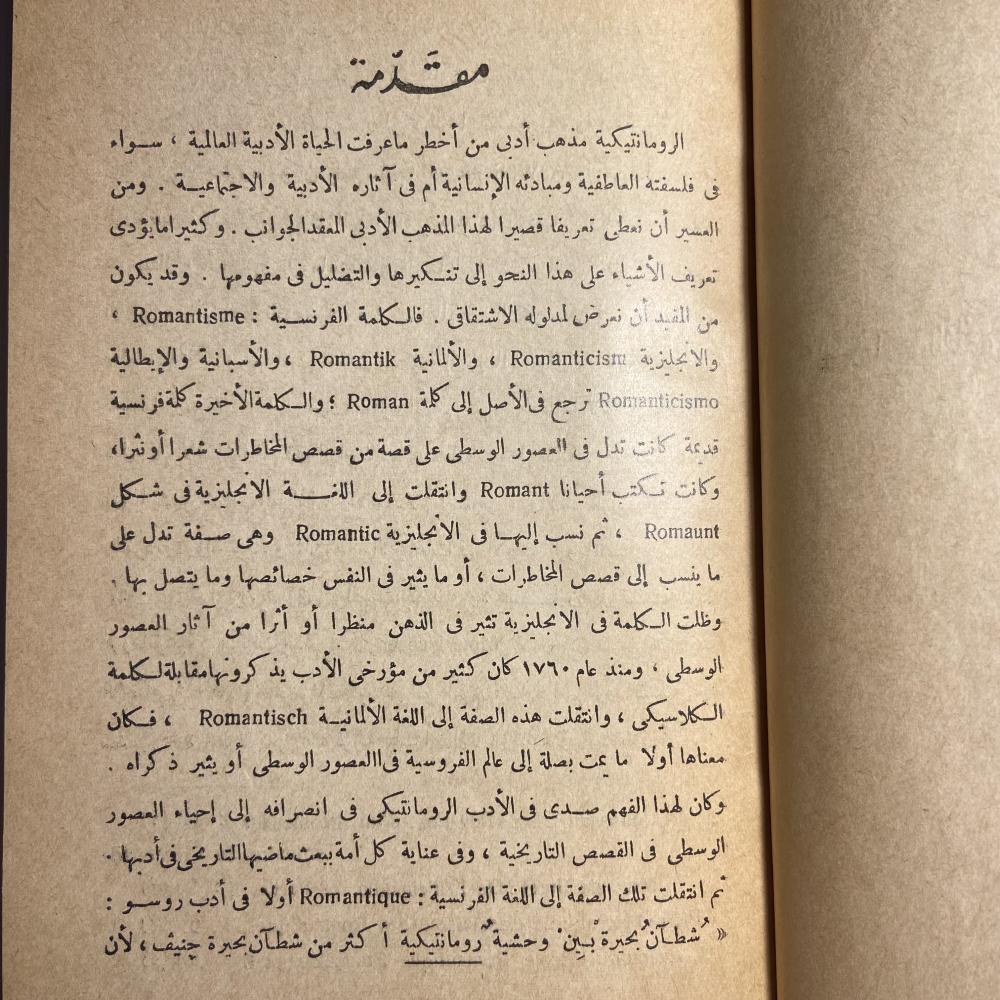 مقدّمة
الرومانتيكية مذهب أدبى من أخطر ماعرفت الحياة الأدبية العالمية ، سـواء
فى فلسفته العاطفية ومبادئه الإنسانية أم فى آثاره الأدبية والاجتماعيـة . ومن
العسير أن نعطى تعريفا قصيرا لهذا المذهب الأدبى المعقد الجوانب . وكثيرا مايؤدى
تعريف الأشياء على هذا النحو إلى تنـكيرها والتضليل فى مفهومها . وقد يكون
من المفيد أن نعرض لمدلوله الاشتقاقى . فالـكلمة الفرنسـية : Romantisme ،
والانجليزية Romanticism ، والألمانية Romantik ، والأسبانية والإيطالية
Romanticismo ترجع فى الأصل إلى كلمة Roman ؛ والـكلمة الأخيرة كلمة فرنسية
قديمة كانت تدل فى العصور الوسطى على قصة من قصص المخاطرات شعرا أو نثرا،
وكانت تـكتب أحيانا Romant وانتقلت إلى اللغـة الانجليزية فى شـكل
Romaunt ، ثم نسب إليهـا فى الانجليزية Romantic وهى صـفة تدل على
ما ينسب إلى قصص المخاطرات ، أو ما يثير فى النفس خصائصها وما يتصل بها .
وظلت الـكلمة فى الانجليزية تثير فى الذهن منظرا أو أثرا من آثار العصور
الوسطى ، ومنذ عام ١٧٦٠ كان كثير من مؤرخى الأدب يذكرونها مقابلة لـكلمة
الـكلاسيكى ، وانتقلت هذه الصفة إلى اللغة الألمانيـة Romantisch ، فـكان
معناها أولا ما يمت بصلة إلى عالم الفروسية فى االعصور الوسطى أو يثير ذكراه .
وكان لهذا الفهم صـدى فى الأدب الرومانتيكى فى انصرافه إلى إحياء العصور
الوسطى فى القصص التاريخية ، وفى عناية كل أمة ببعث ماضيها التاريخى فى أدبها .
ثم انتقلت تلك الصفة إلى اللغة الفرنسية : Romantique أولا فى أدب روسـو :
« شطـآن بحيرة بـيين وحشية رومانتيكية أكثر من شطـآن بحيرة جنيف ، لأن